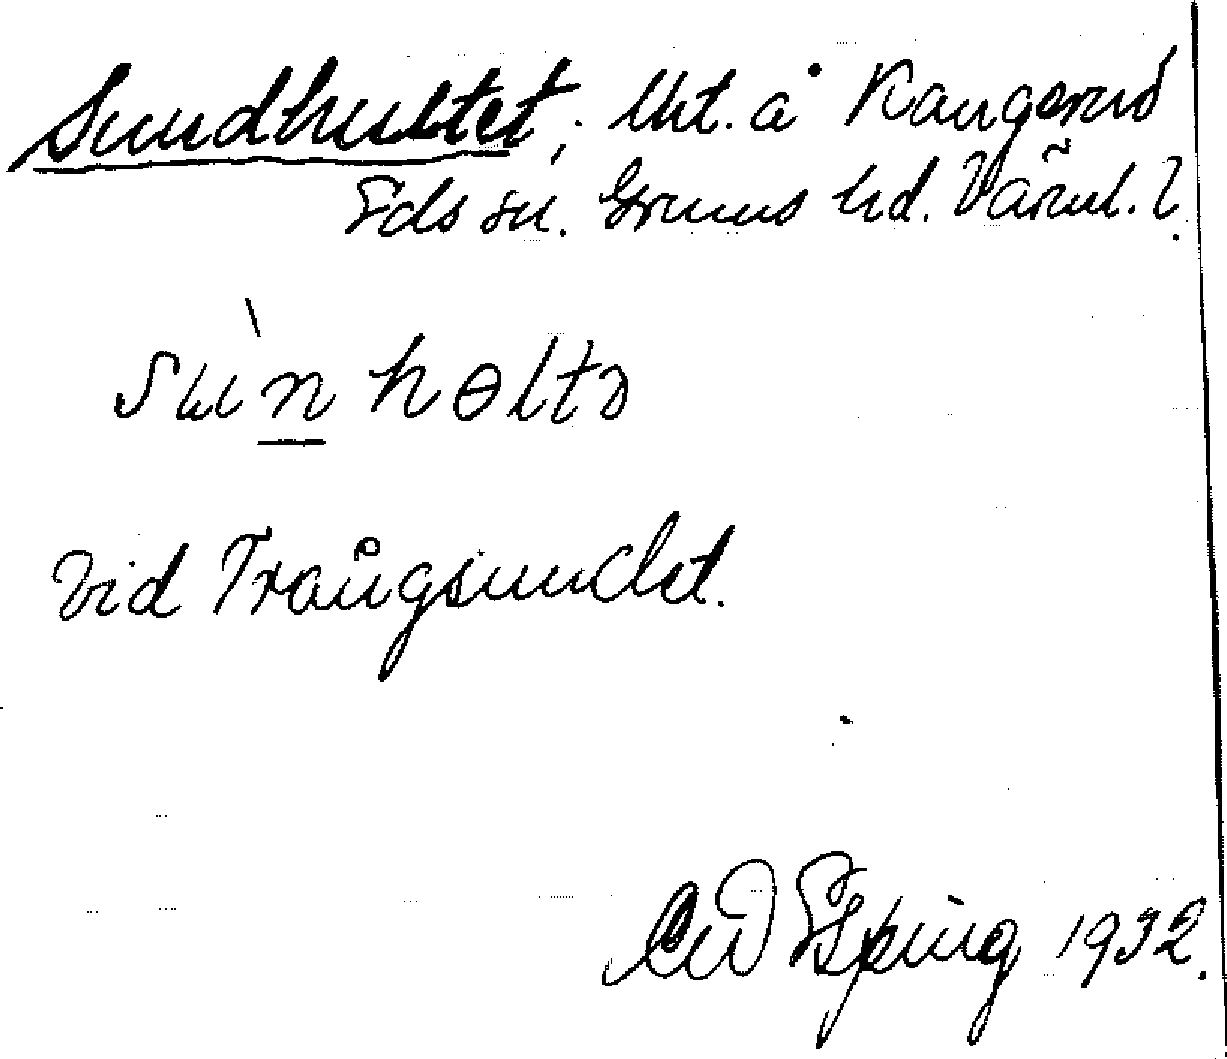 Sundhultet, Utt. å Rangerud
Eds sn. Grums hd. Värml.
sun holtə
Vid Trångsundet.
Esping 1932.